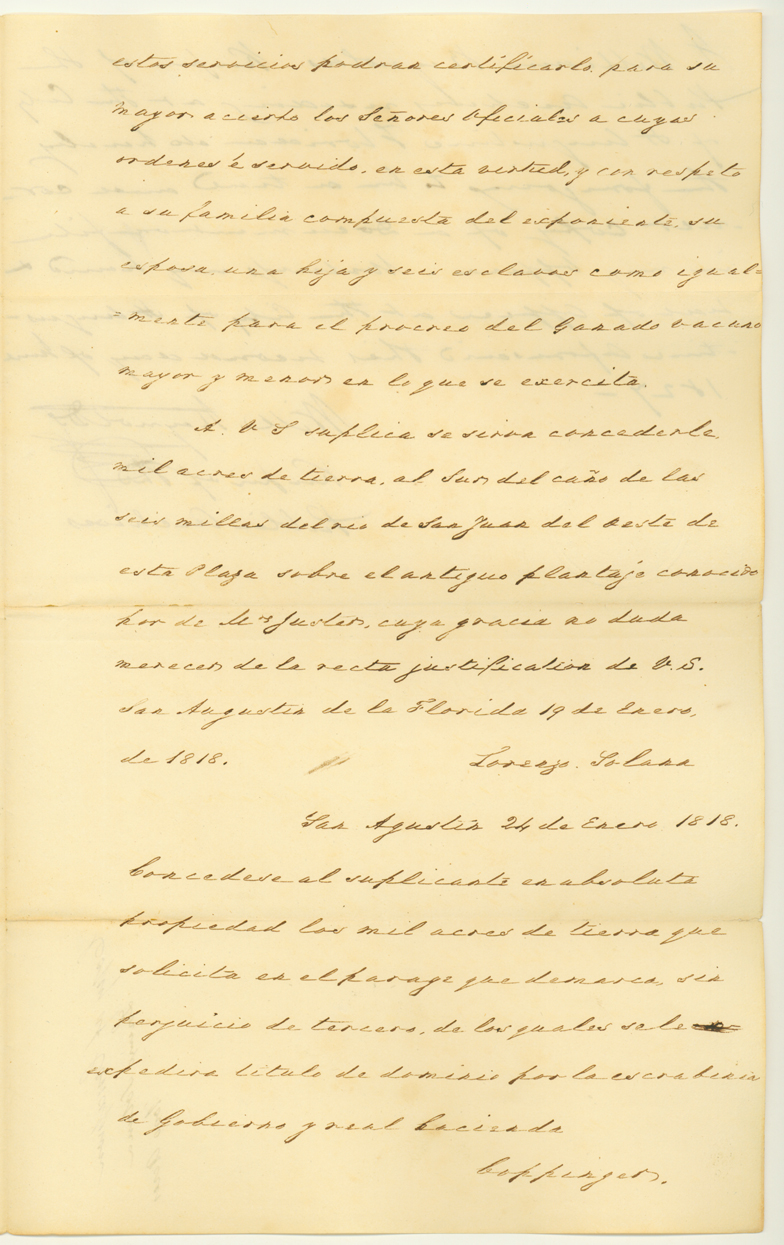 estos servicios podran certificarlo, para su
mayor acierto los Señores Oficiales a cuyas
ordenes é servido, en esta virtud, y con respeto
a su familia compuesta del esponiente, su
esposa, una hija y seis esclavos como igual=
=mente para el procreo del Ganado vacuno
mayor y menor en lo que se exercita.
A. V S suplica se sirva concederle,
mil acres de tierra, al Sur del caño de las
seis millas del rio de San Juan del Oeste de
esta Plaza sobre el antiguo plantaje conocido
por de Mr Juster, cuya gracia no duda
merecer de la recta justification de V.S.
San Augustin de la Florida 19 de Enero,
de 1818. Lorenzo. Solana
San Agustin 24 de Enero 1818.
Concedese al suplicante en absoluta
propiedad los mil acres de tierra que
solicita en el parage que demarca, sin
perjuicio de tercero, de los quales se le
expedira titulo de dominio por la escrabinia
de Gobierno y real hacienda
Coppinger.